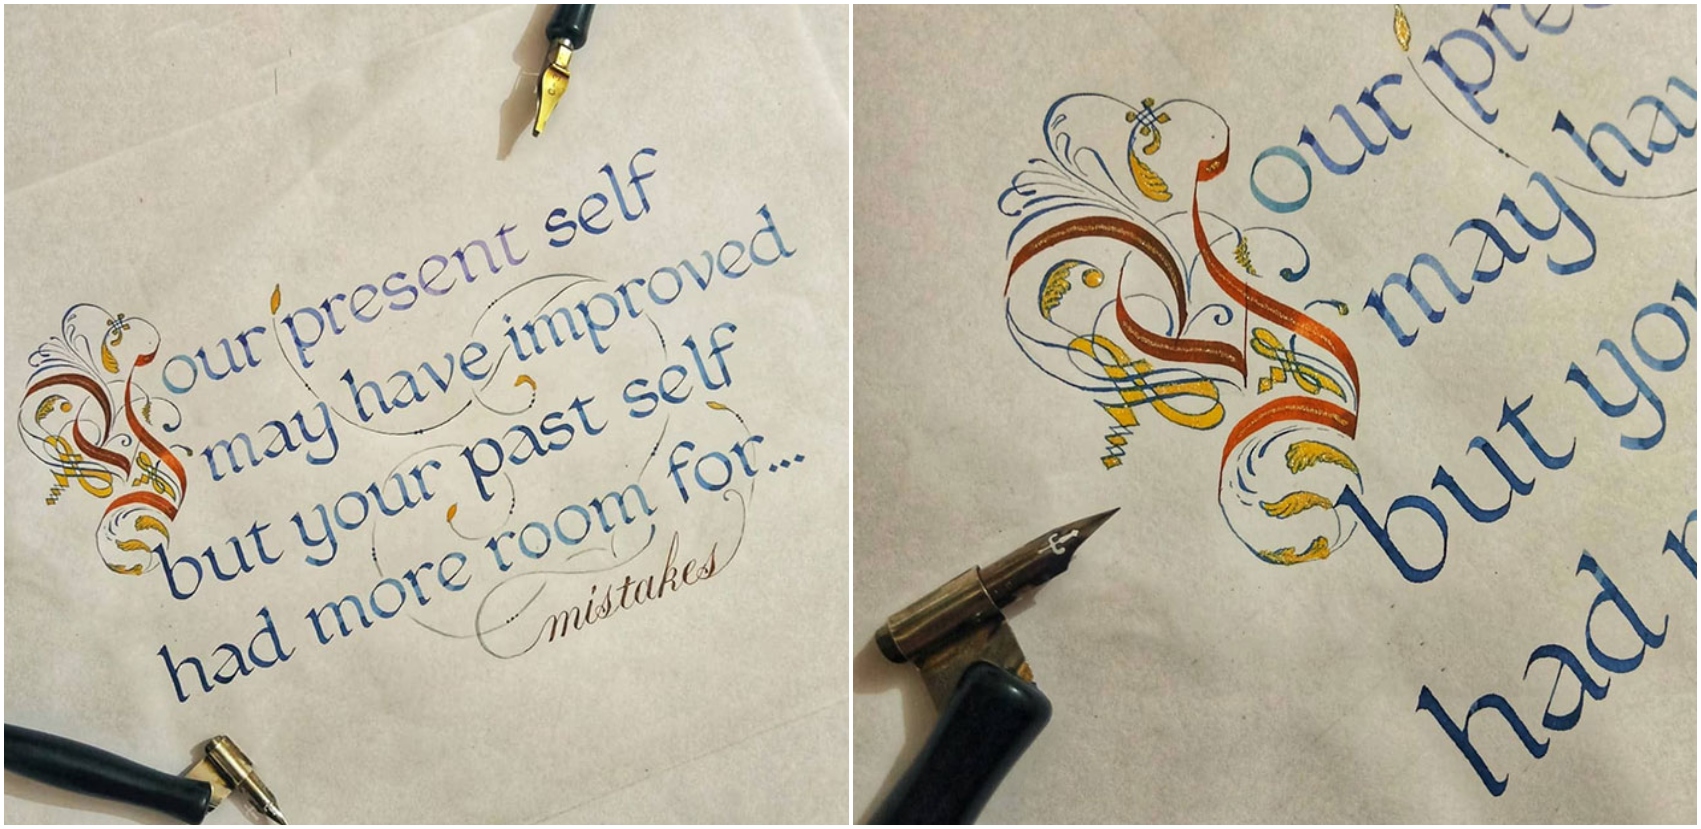 Your present self
may have improved
but your past self
had more room for...
mistakes
our pres
may hav
but you
had m